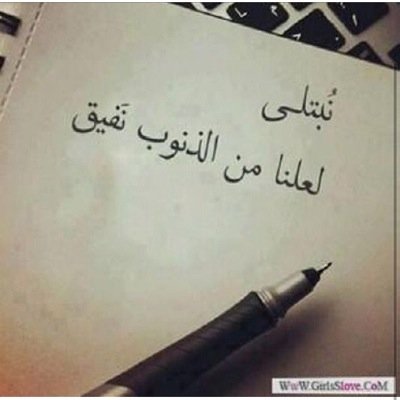 نُبتلـى
لعلنا من الذنوب نَفيق
WwW.GirlsSlove.CoM